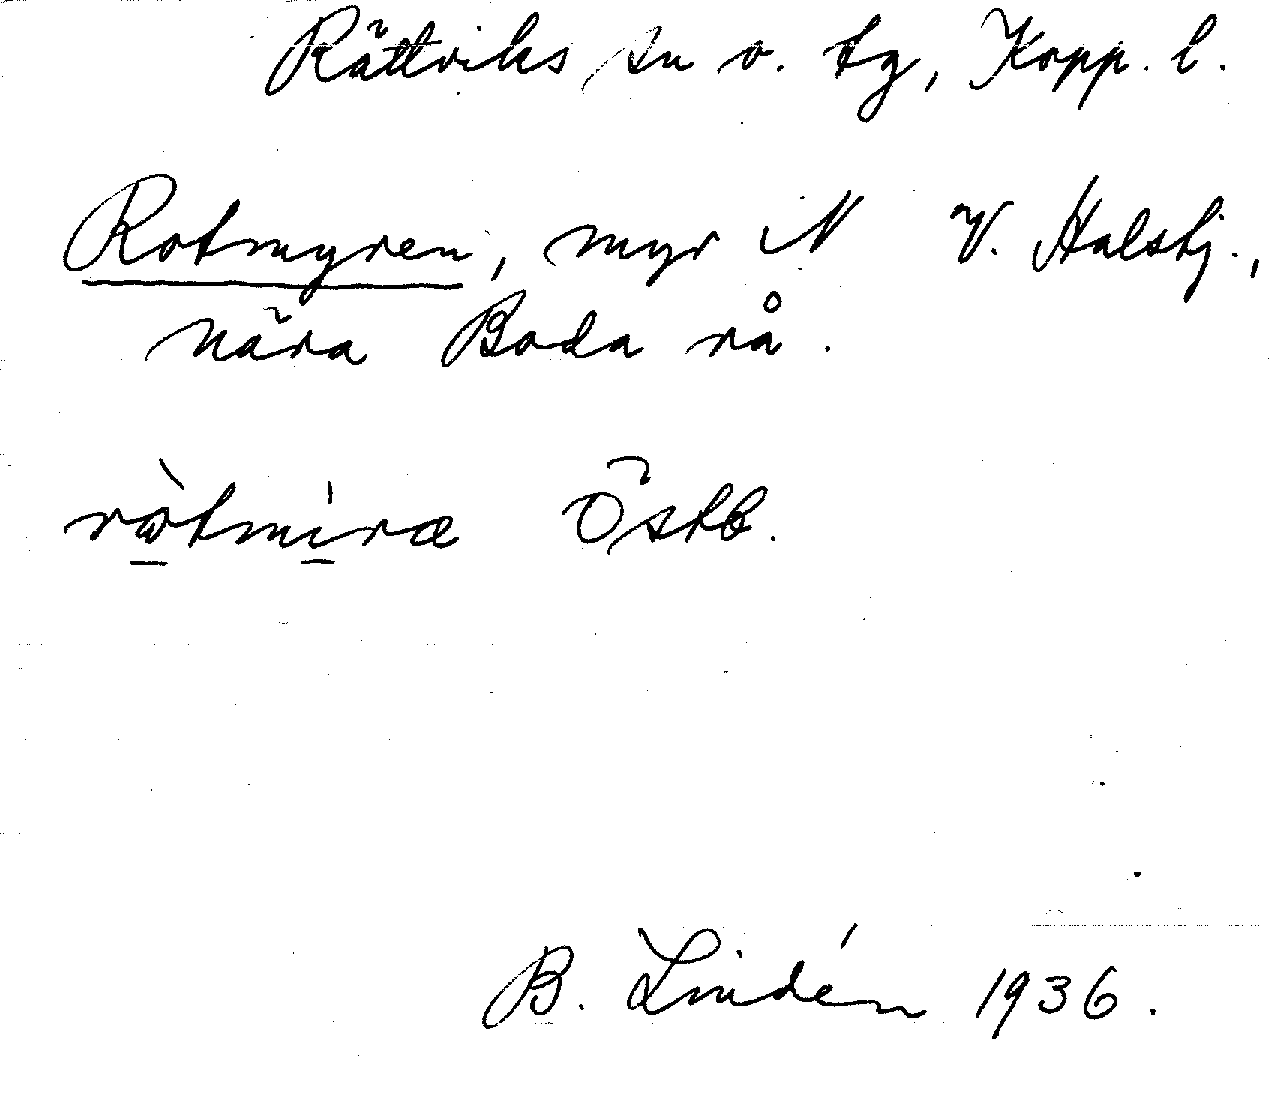 Rättviks sn o. tg, Kopp. l.
Rotmyren, myr N V. Halsbj.,
nära Boda rå.
ròtmìræ Östb.
B. Lindén 1936.